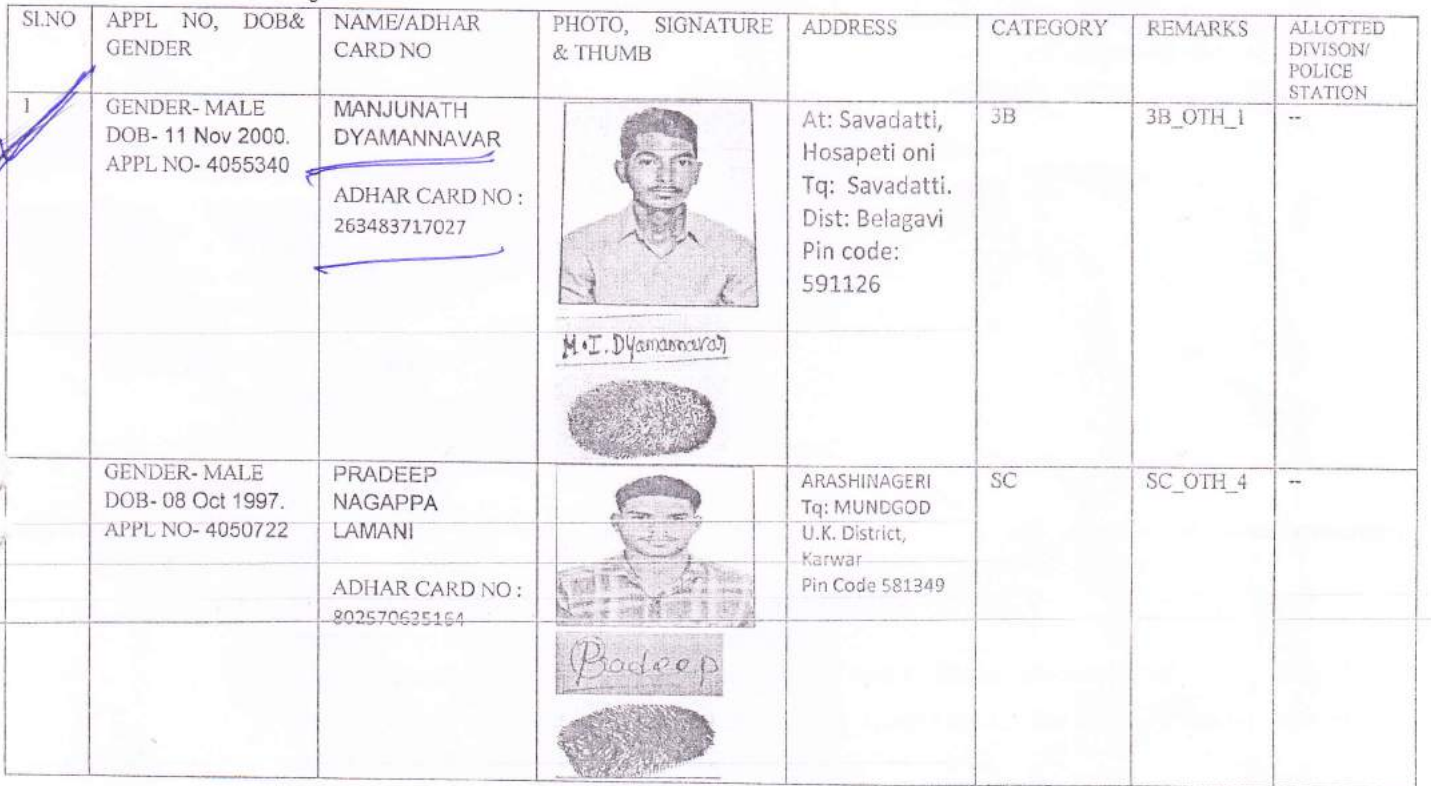 SI.NO
APPL NO, DOB&
GENDER
NAME/ADHAR
CARD NO
PHOTO, SIGNATURE
& THUMB
ADDRESS
CATEGORY
REMARKS
ALLOTTED
DIVISON/
POLICE
STATION
1
GENDER- MALE
DOB- 11 Nov 2000.
APPL NO- 4055340
MANJUNATH
DYAMANNAVAR
ADHAR CARD NO :
263483717027
M.I.Dyamannavar
At: Savadatti,
Hosapeti oni
Tq: Savadatti.
Dist: Belagavi
Pin code:
591126
3B
3B_OTH_1
--
GENDER- MALE
DOB- 08 Oct 1997.
APPL NO- 4050722
PRADEEP
NAGAPPA
LAMANI
ADHAR CARD NO :
802570635164
Pradeep
ARASHINAGERI
Tq: MUNDGOD
U.K. District,
Karwar
Pin Code 581349
SC
SC_OTH_4
--